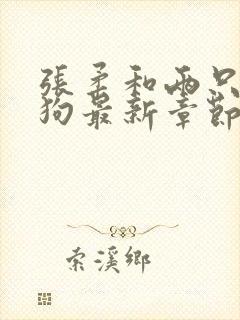 張柔和兩只
狗最新章節
索溪鄉